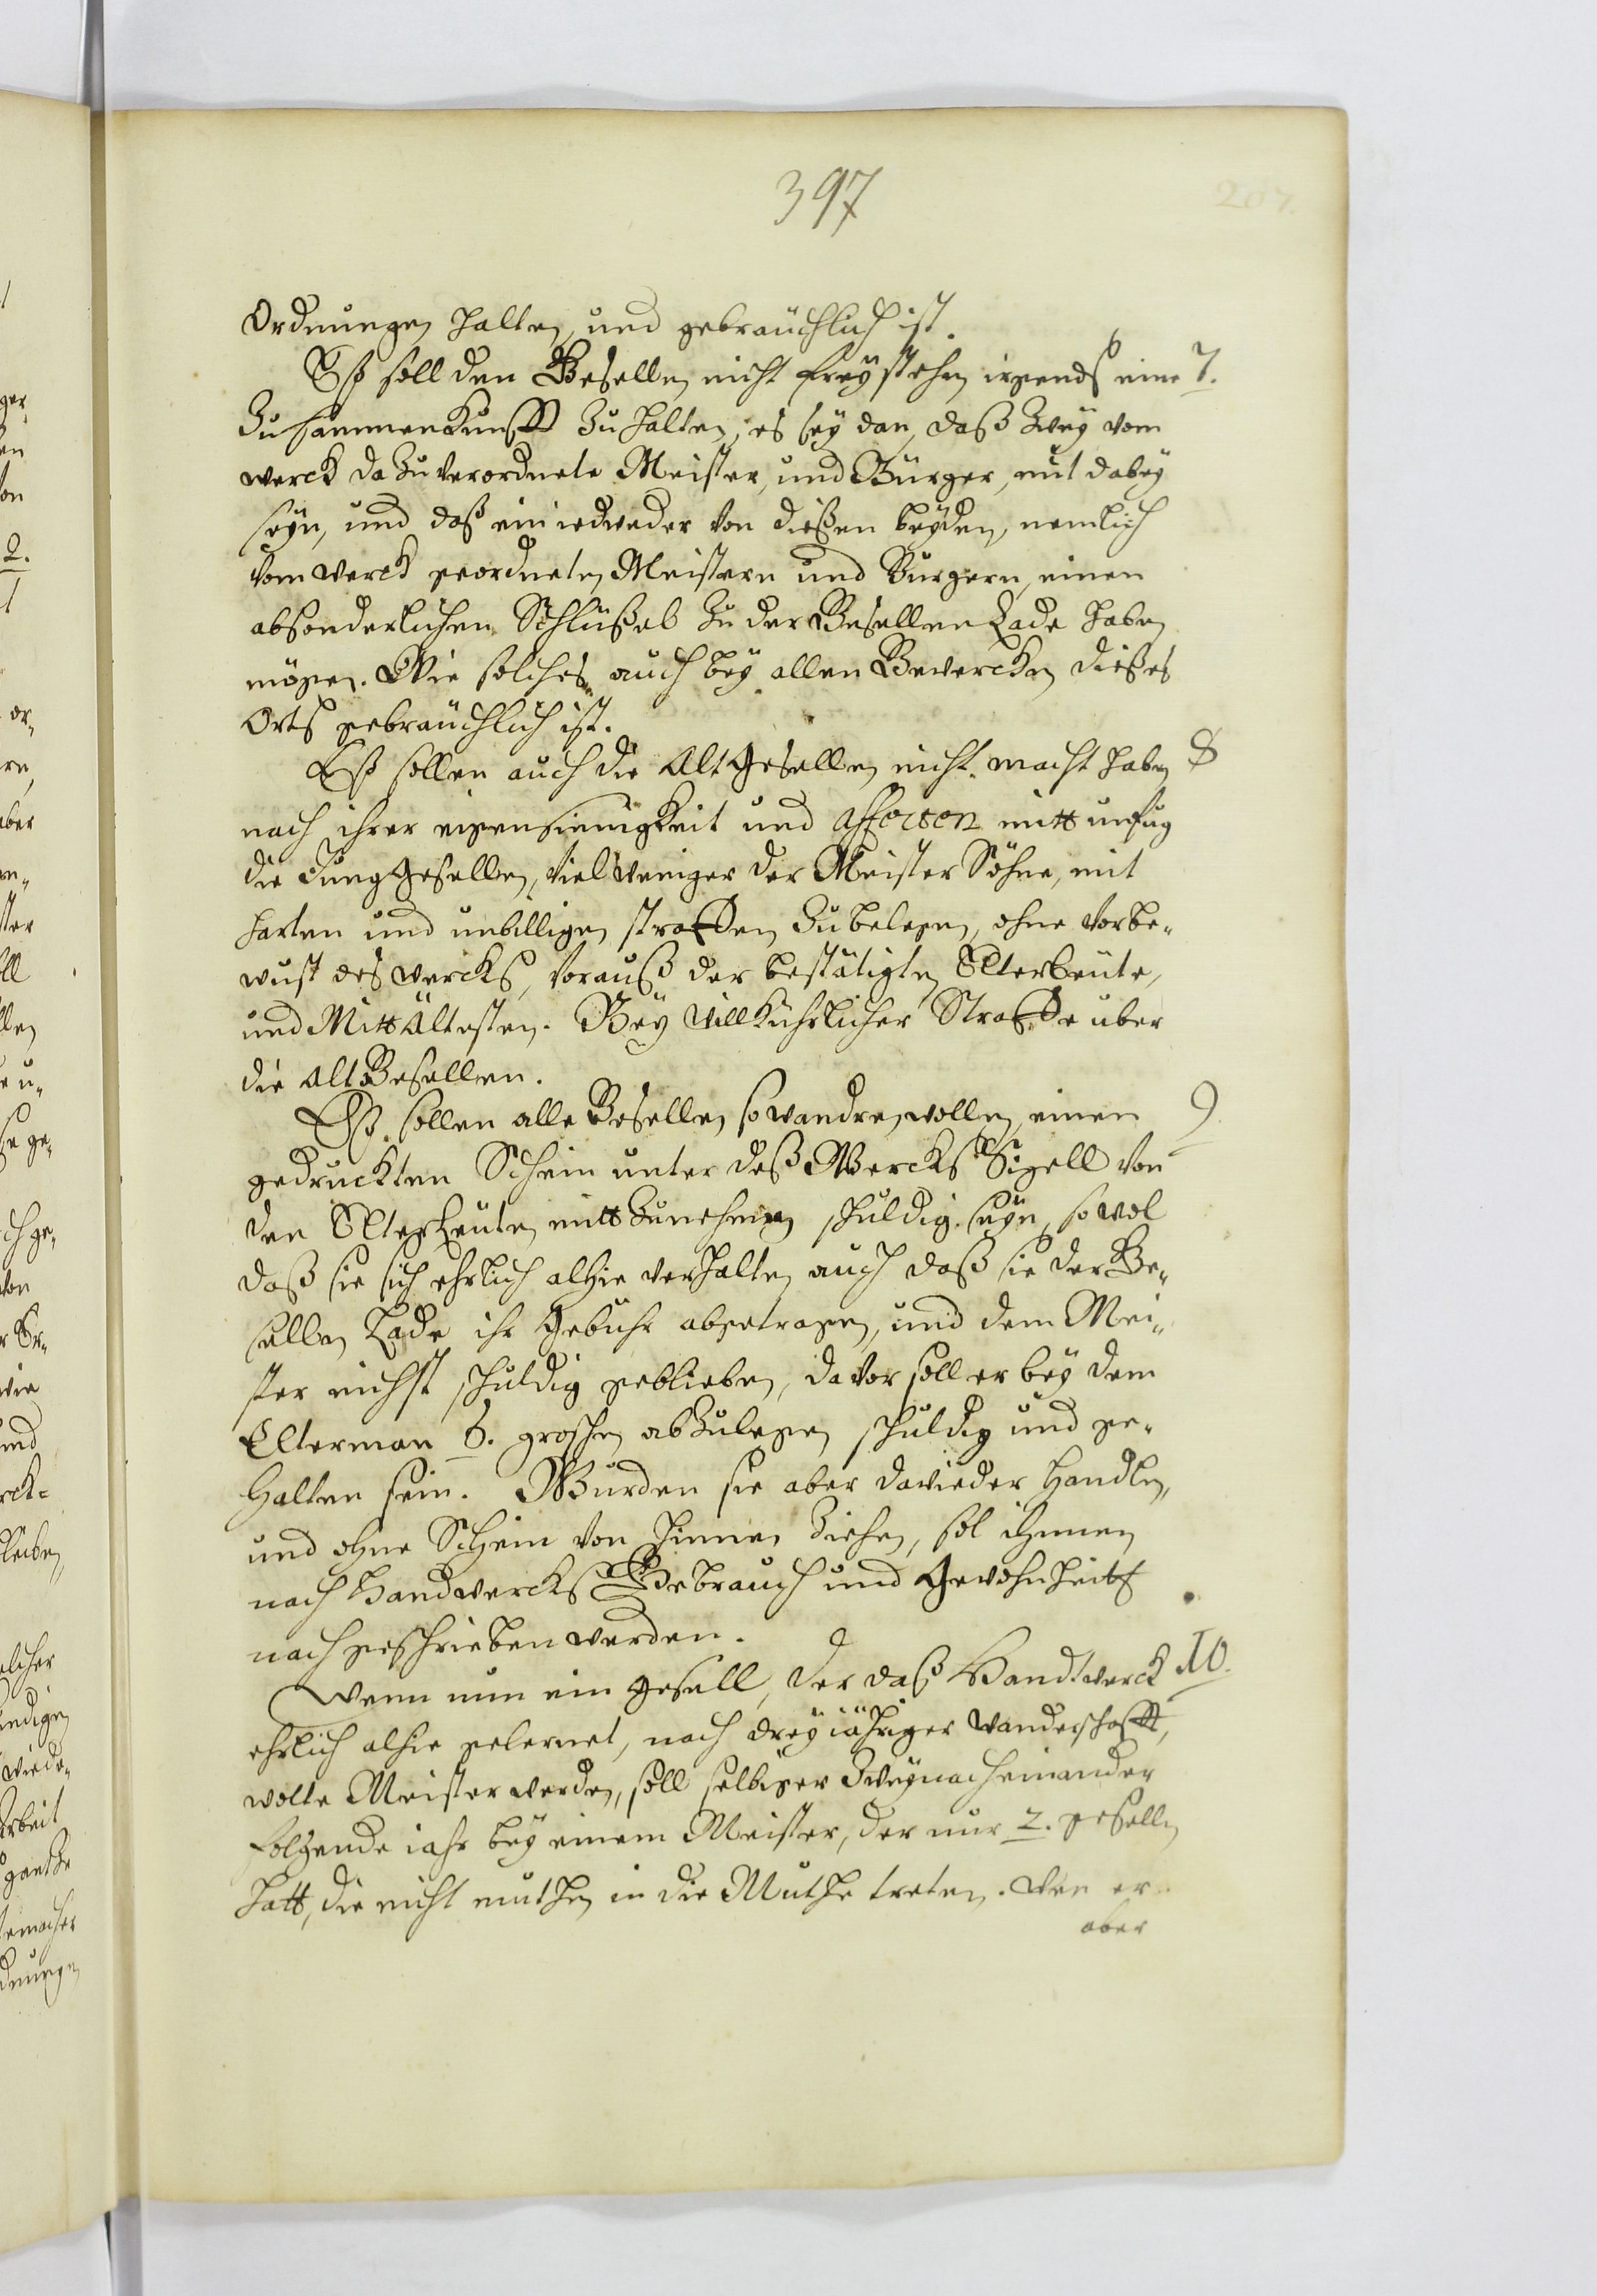 397
207.
Ordnungen halten, und gebräuchlich ist.
Eß soll den Gesellen nicht freystehen irgends eine 7.
Zusammenkunfft zu halten, es sey dan, daß zwey vom
werck dazu verordnete Meister, und Bürger, mit dabey
seyn, und daß ein iedweder von dießen beyden, nemlich
vom werck geordneten Meistern und Bürgern, einen
absonderlichen Schlüßel zu der Gesellen Lade haben
mögen. Wie solches auch bey allen Gewercken dießes
Orts gebräuchlich ist.
Eß sollen auch die Alt Gesellen nicht macht haben 8
nach ihrer eigensinnigkeit und affecten mitt unfug
die Jung Gesellen, viel weniger der Meister Söhne, mit
harten und unbilligen straffen zu belegen, ohne vorbe-
wust des wercks, vorauß der bestätigten Elterleute,
und Mitt Ältesten. Bey willkührlicher Straffe über
die Alt Gesellen.
Eß sollen alle Gesellen so wandren wollen, einen 9
gedruckten Schein unter deß Wercks Sigell von
den Elterleuten mitt zunehmen schuldig seyn, so wol
daß sie sich ehrlich alhie verhalten auch daß sie der Ge-
sellen Lade ihr Gebühr abgetragen, und dem Mei-
ster nichst schuldig geblieben, davor soll er bey dem
Elterman 6. groschen abzulegen schuldig und ge-
halten sein. Würden sie aber dawieder handlen,
und ohne Schein von hinnen ziehen, sol ihnnen
nach Handwercks Gebrauch und Gewohnheit
nachgeschrieben werden.
Wenn nun ein gesell, der daß Handtwerck 10.
ehrlich alhie gelernet, nach drey iähriger wanderschafft,
wolte Meister werden, soll selbiger zwey nach einander
folgende iahr bey einem Meister, der nur 2. gesellen
hatt, die nicht muthen in die Muthe treten. Wen er
aber